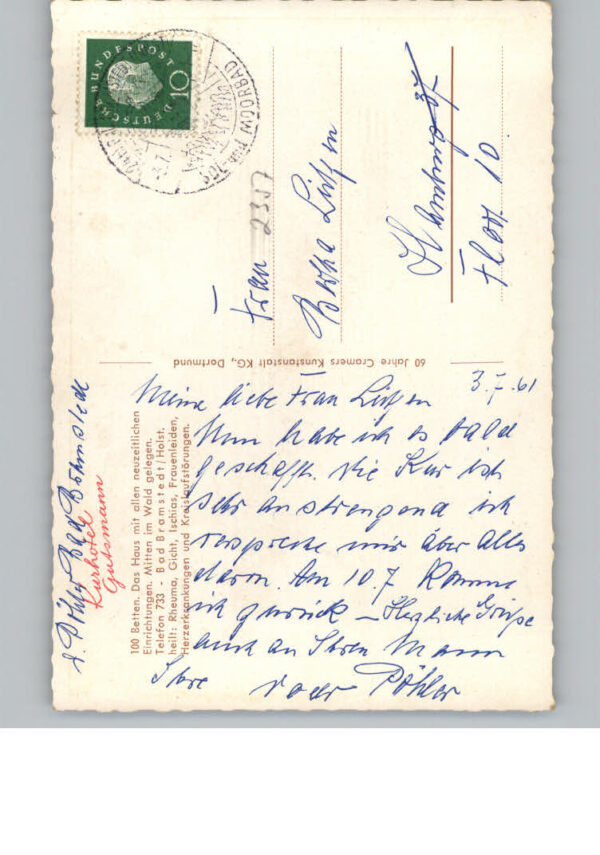 DEUTSCHE BUNDESPOST
10
MOOR
Frau
2357
Lützen
Hamburg
10
60 Jahre Cramers Kunstanstalt KG., Dortmund
100 Betten. Das Haus mit allen neuzeitlichen
Einrichtungen. Mitten im Wald gelegen.
Telefon 733 - Bad Bramstedt/Holst.
heilt: Rheuma, Gicht, Ischias, Frauenleiden,
Herzerkrankungen und Kreislaufstörungen.
Pöhler Bad Bramstedt
Kurhotel
Gutsmann
3.7.61
Meine liebe Frau Lützen
Nun habe ich es bald
geschafft. Die Kur ist
sehr anstrengend ich
verspreche mir aber alles
davon. Am 10.7 komme
ich zurück – Herzliche Grüße
auch an Ihren Mann
Ihre
Pöhler